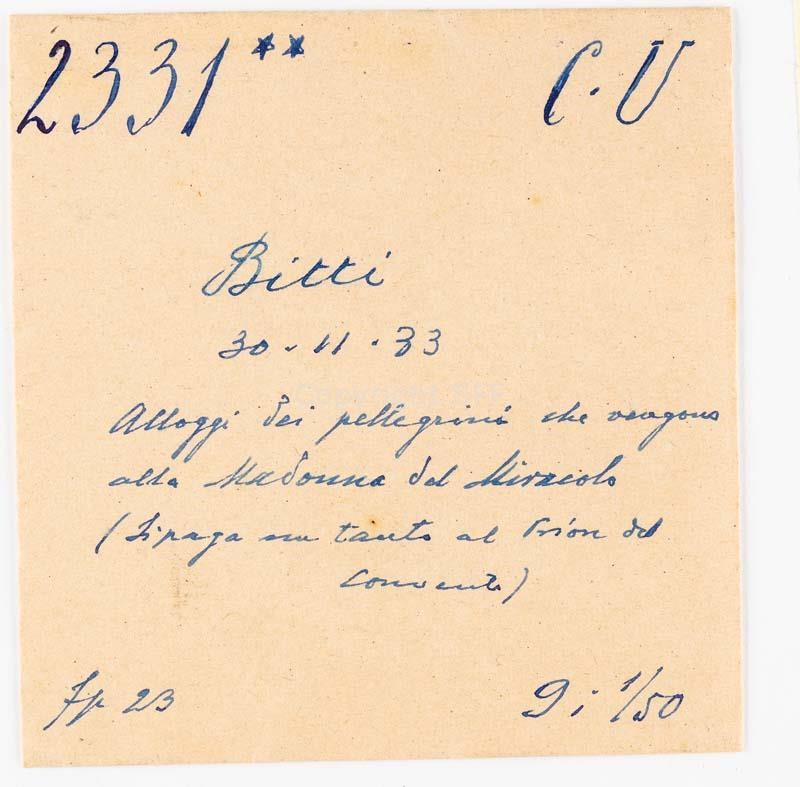 2331** C.U
Bitti
30-11.33
Alloggi dei pellegrini che vengono
alla Madonna del Miracolo
(Si paga un tanto al Prior del
convento)
9 i 1/50
23